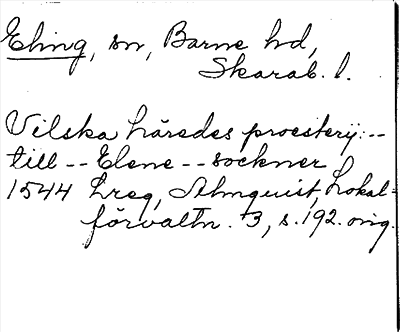 Eling, sn, Barne hd,
Skarab. l.
Vilska häredes proestery:--
till -- Elene -- sockner
1544 Lreg, Almquist, Lokal=
förvaltn. 3, s. 192. orig.